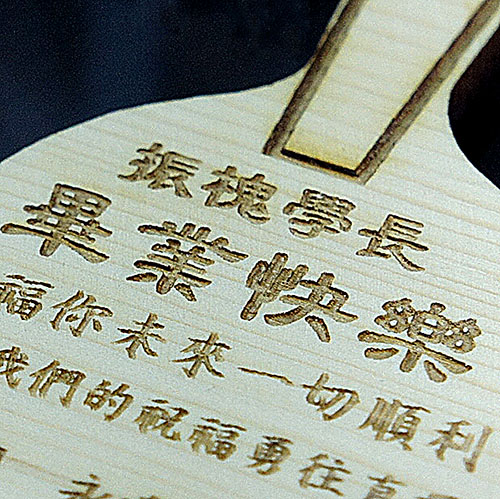 振槐學長
畢業快樂
福你未來一切順利
我們的祝福勇往直
永